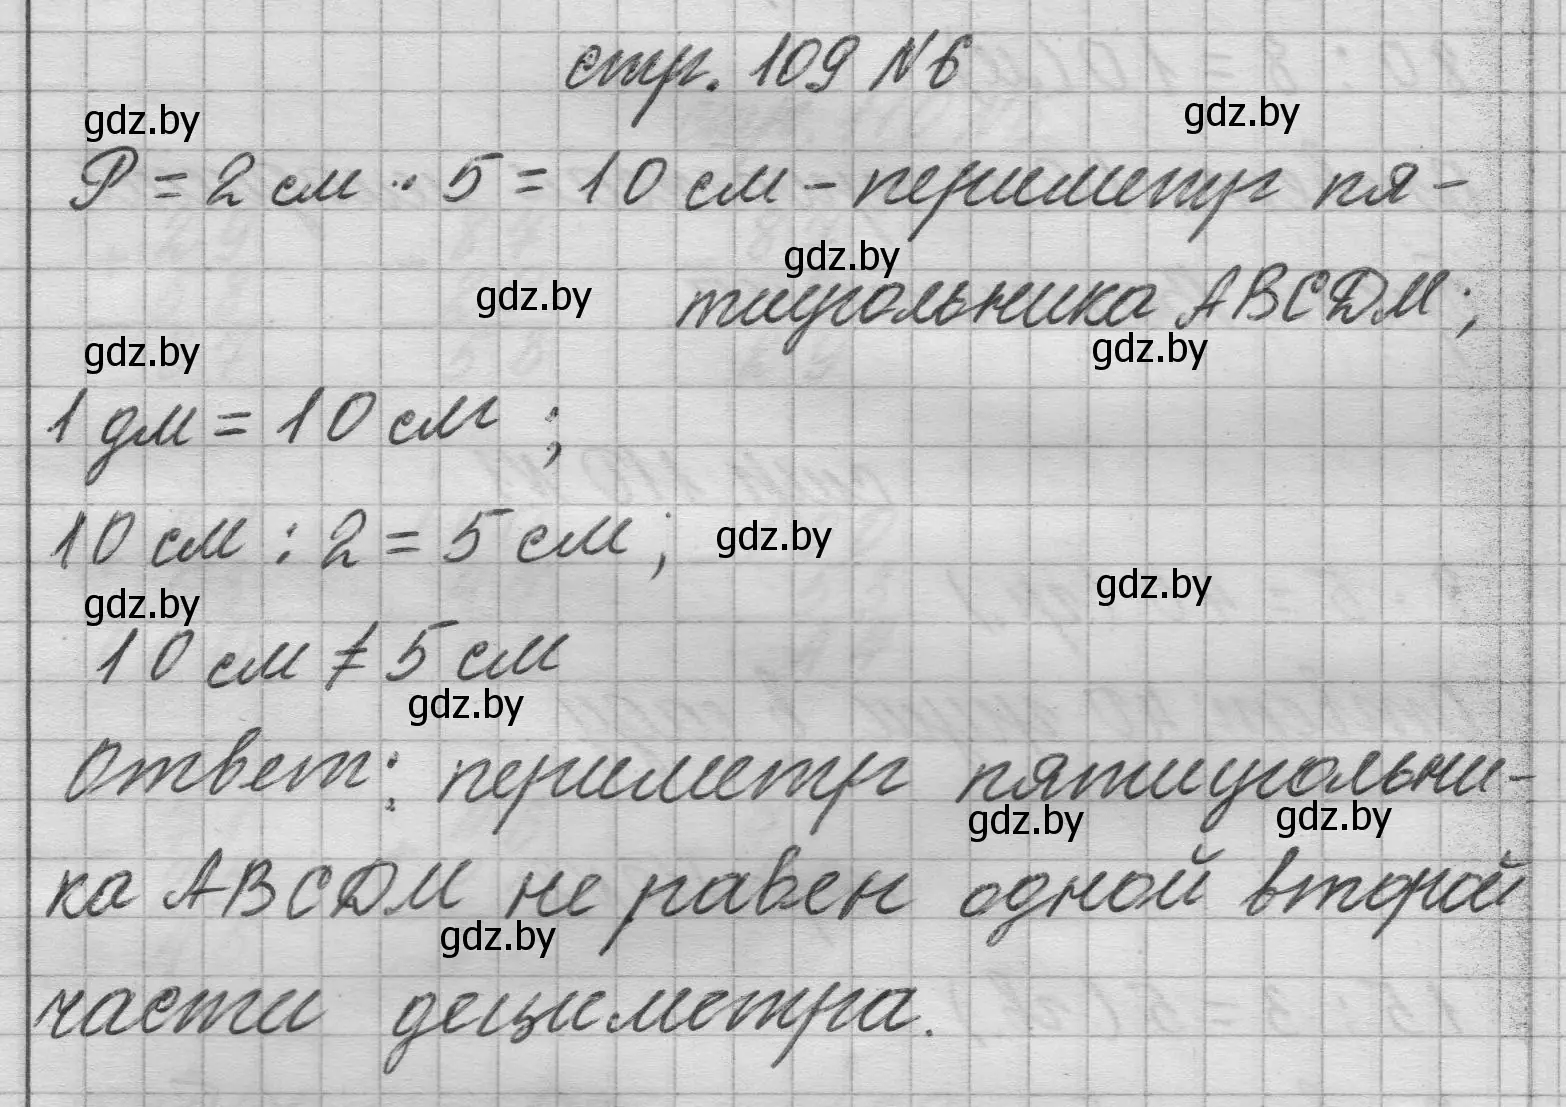 стр. 109 №6
gdz.by gdz.by
P = 2 см · 5 = 10 см - периметр пя-
gdz.by
gdz.by тиугольника ABCDM;
gdz.by gdz.by
1 дм = 10 см ;
10 см : 2 = 5 см ; gdz.by
gdz.by
gdz.by
10 см ≠ 5 см
gdz.by
Ответ: периметр пятиугольни-
gdz.by gdz.by
ка ABCDM не равен одной второй
gdz.by
части дециметра.